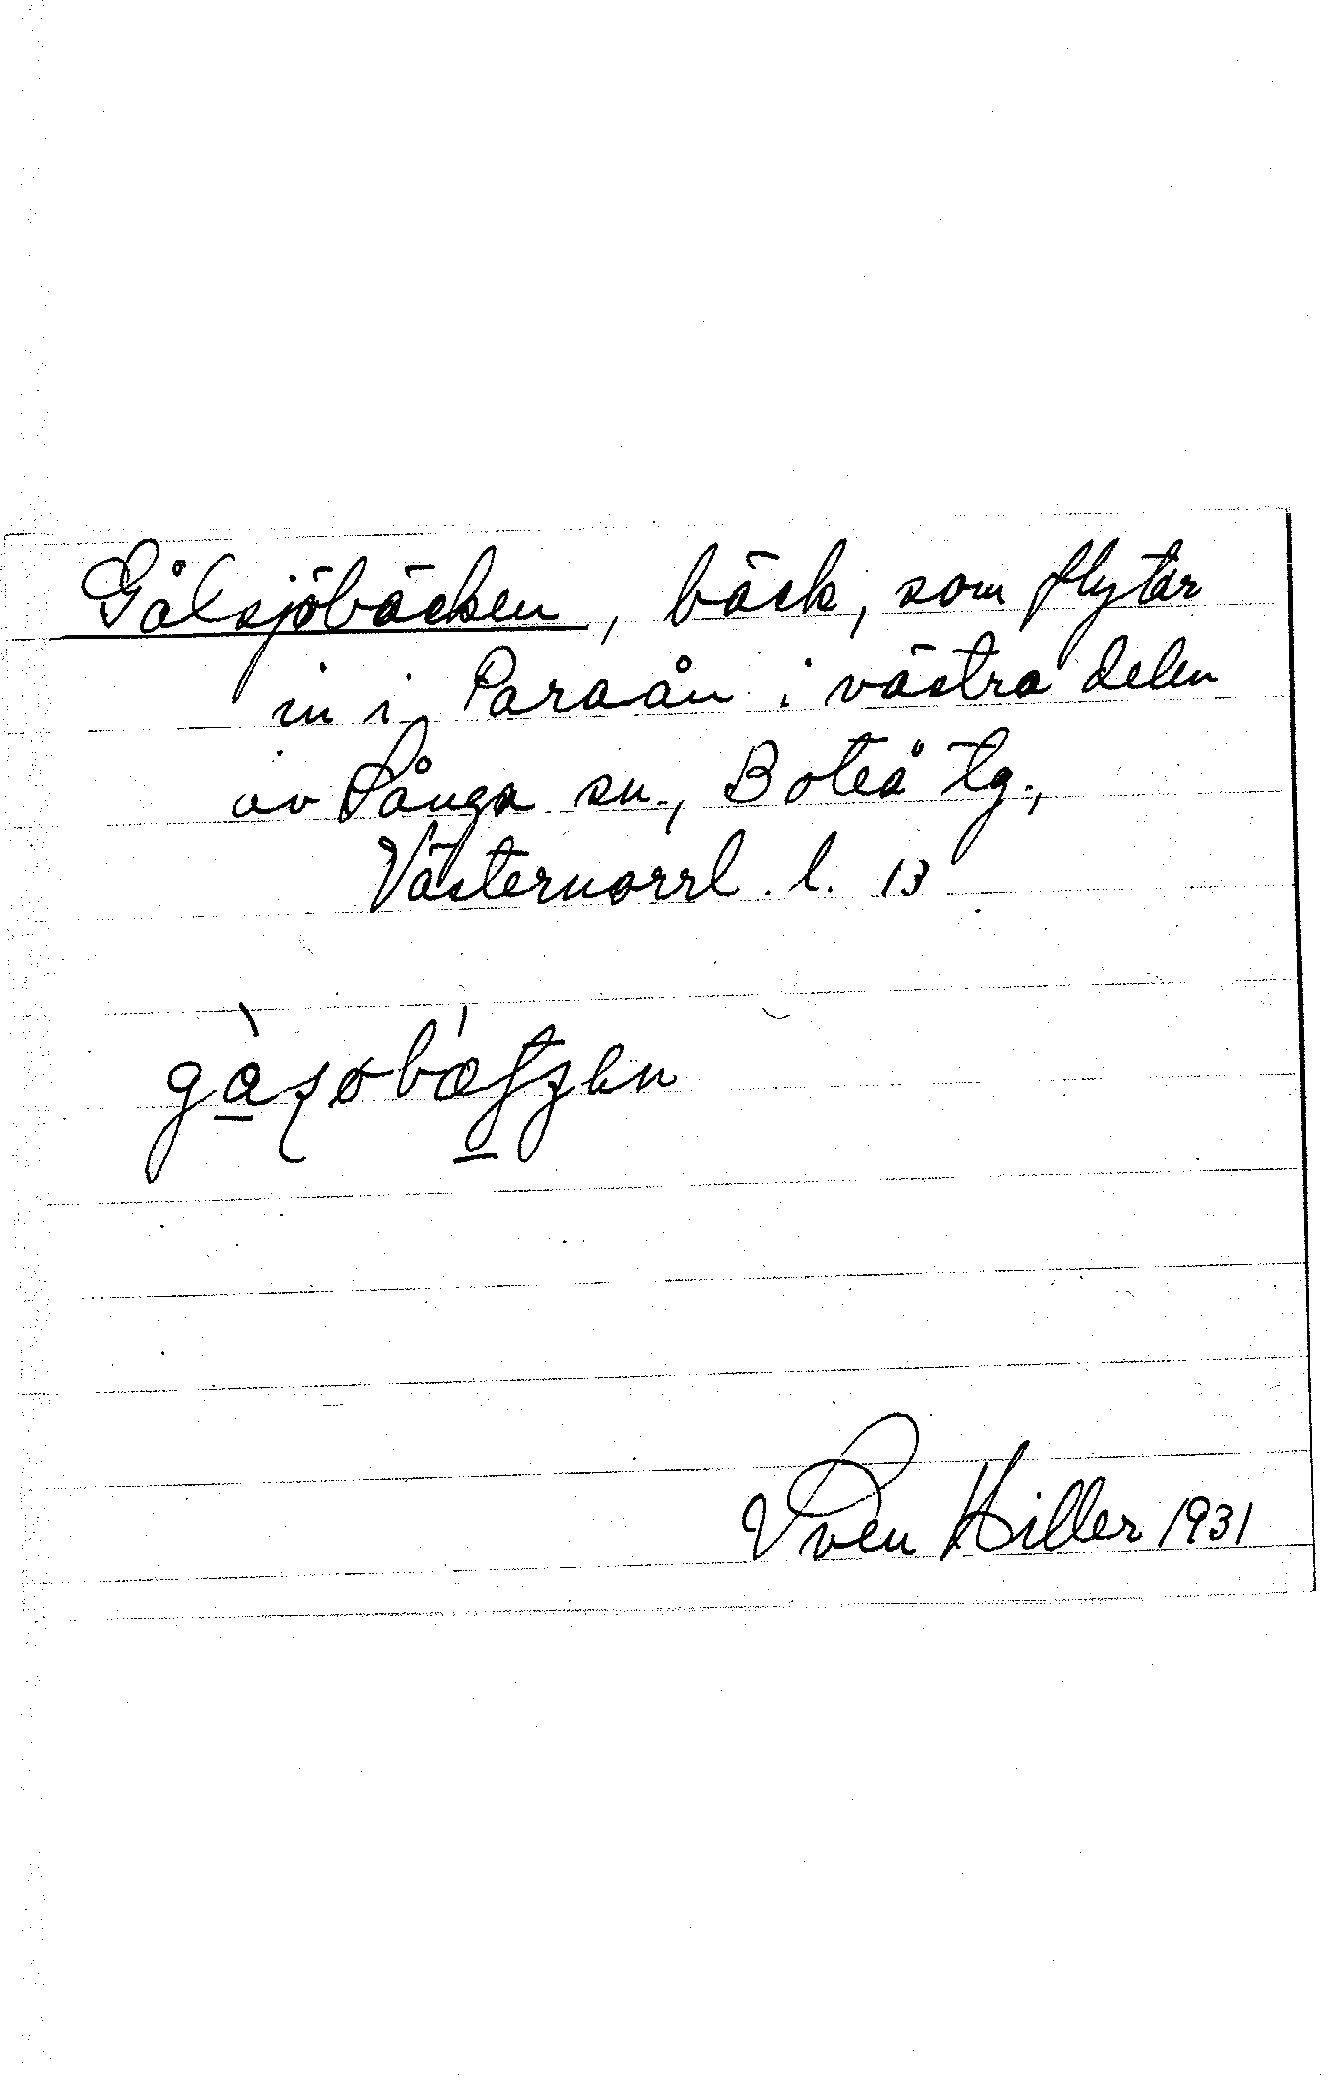 Gålsjöbäcken, bäck, som flytar
in i Paraån i västra delen
av Sånga sn., Boteå tg.,
Västernorrl. l. 13
Sven Hiller 1931